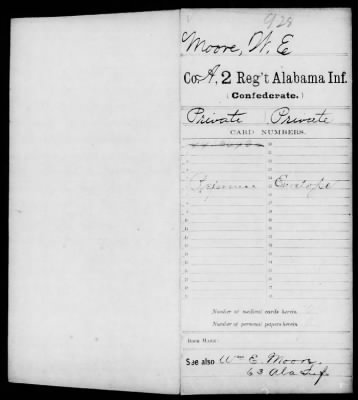 928
Moore, W. E
Co. A, 2 Reg't Alabama Inf.
(Confederate.)
Private Private
CARD NUMBERS.
Envelope
Number of medical cards herein
Number of personal papers herein
BOOK MARK:
See also Wm E. Moon
63 Ala Inf